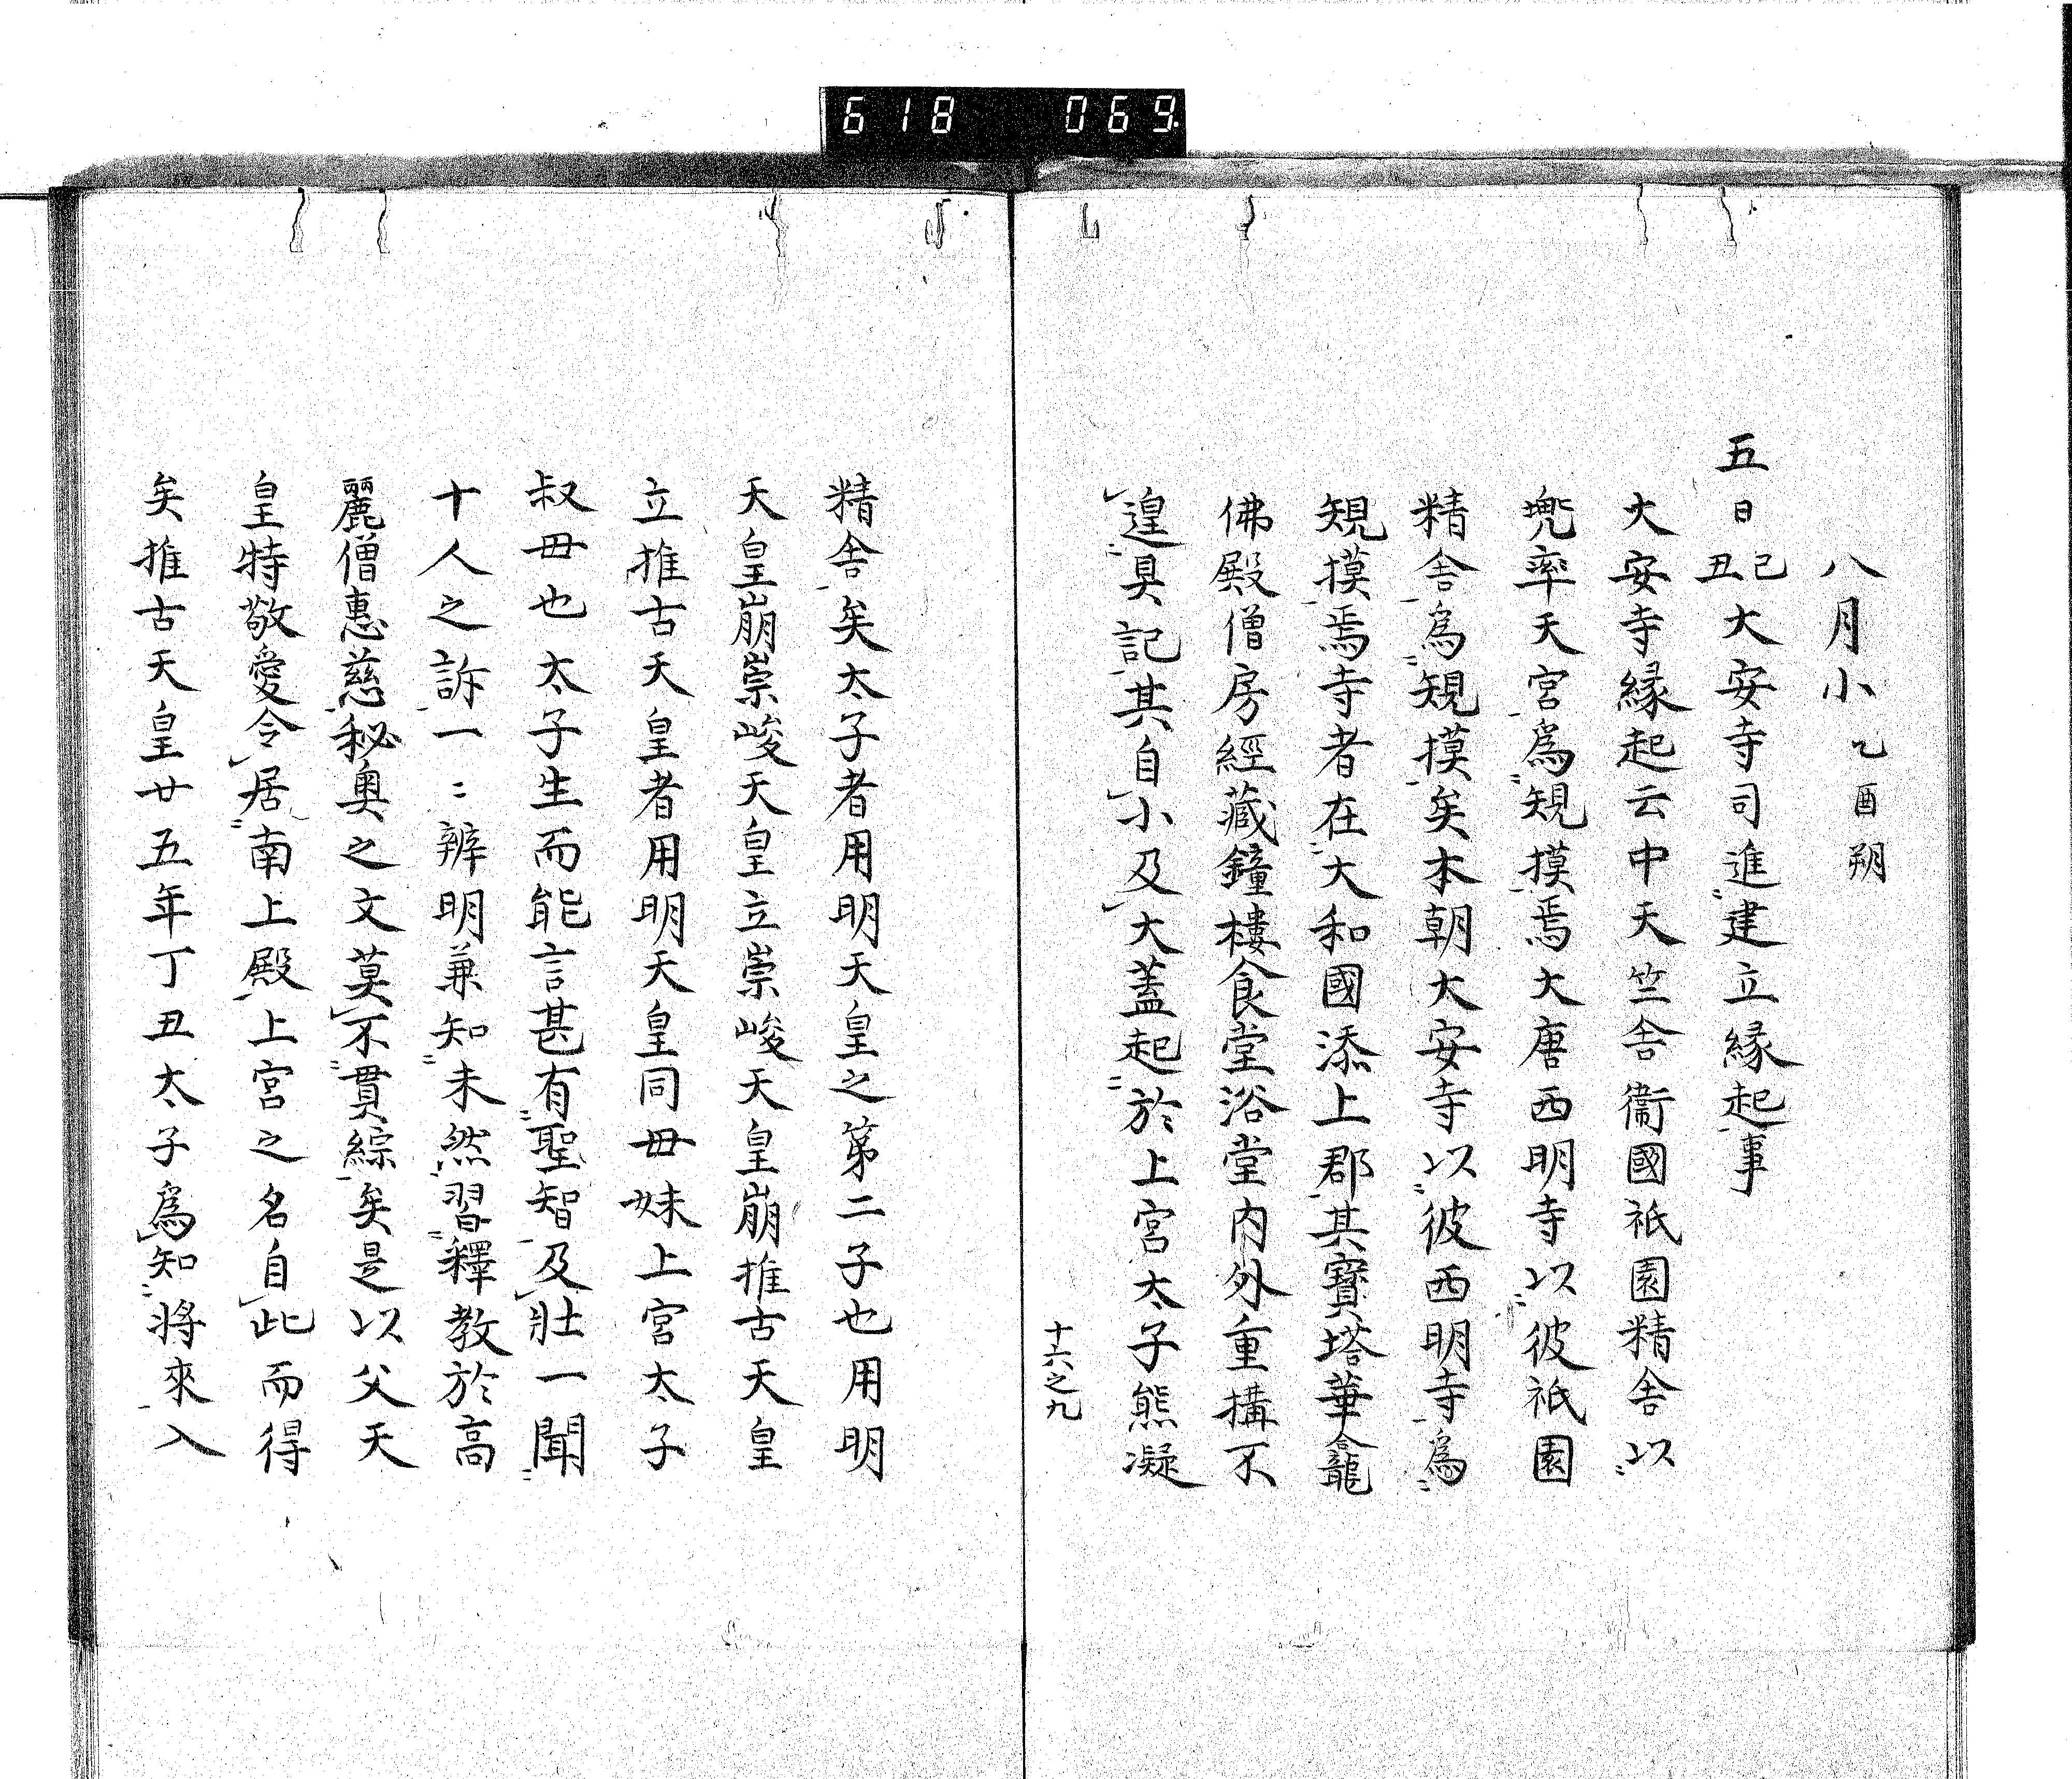 618 069
八月小乙酉朔
五日己丑大安寺司進建立緣起事
大安寺緣起云中天竺舍衞國祇園精舍以
兜率天宮爲規摸焉大唐西明寺以彼祇園
精舍爲規摸矣本朝大安寺以彼西明寺爲
規摸焉寺者在大和國添上郡其寶塔華龕
佛殿僧房經藏鐘樓食堂浴堂內外重構不
遑具記其自小及大蓋起於上宮太子熊凝
十六之九
精舍矣太子者用明天皇之第二子也用明
天皇崩崇峻天皇立崇峻天皇崩推古天皇
立推古天皇者用明天皇同毋妹上宮太子
叔毋也太子生而能言甚有聖智及壯一聞
十人之訴一〻辨明兼知未然習釋教於高
麗僧惠慈秘奧之文莫不貫綜矣是以父天
皇特敬愛令居南上殿上宮之名自此而得
矣推古天皇廿五年丁丑太子爲知將來入